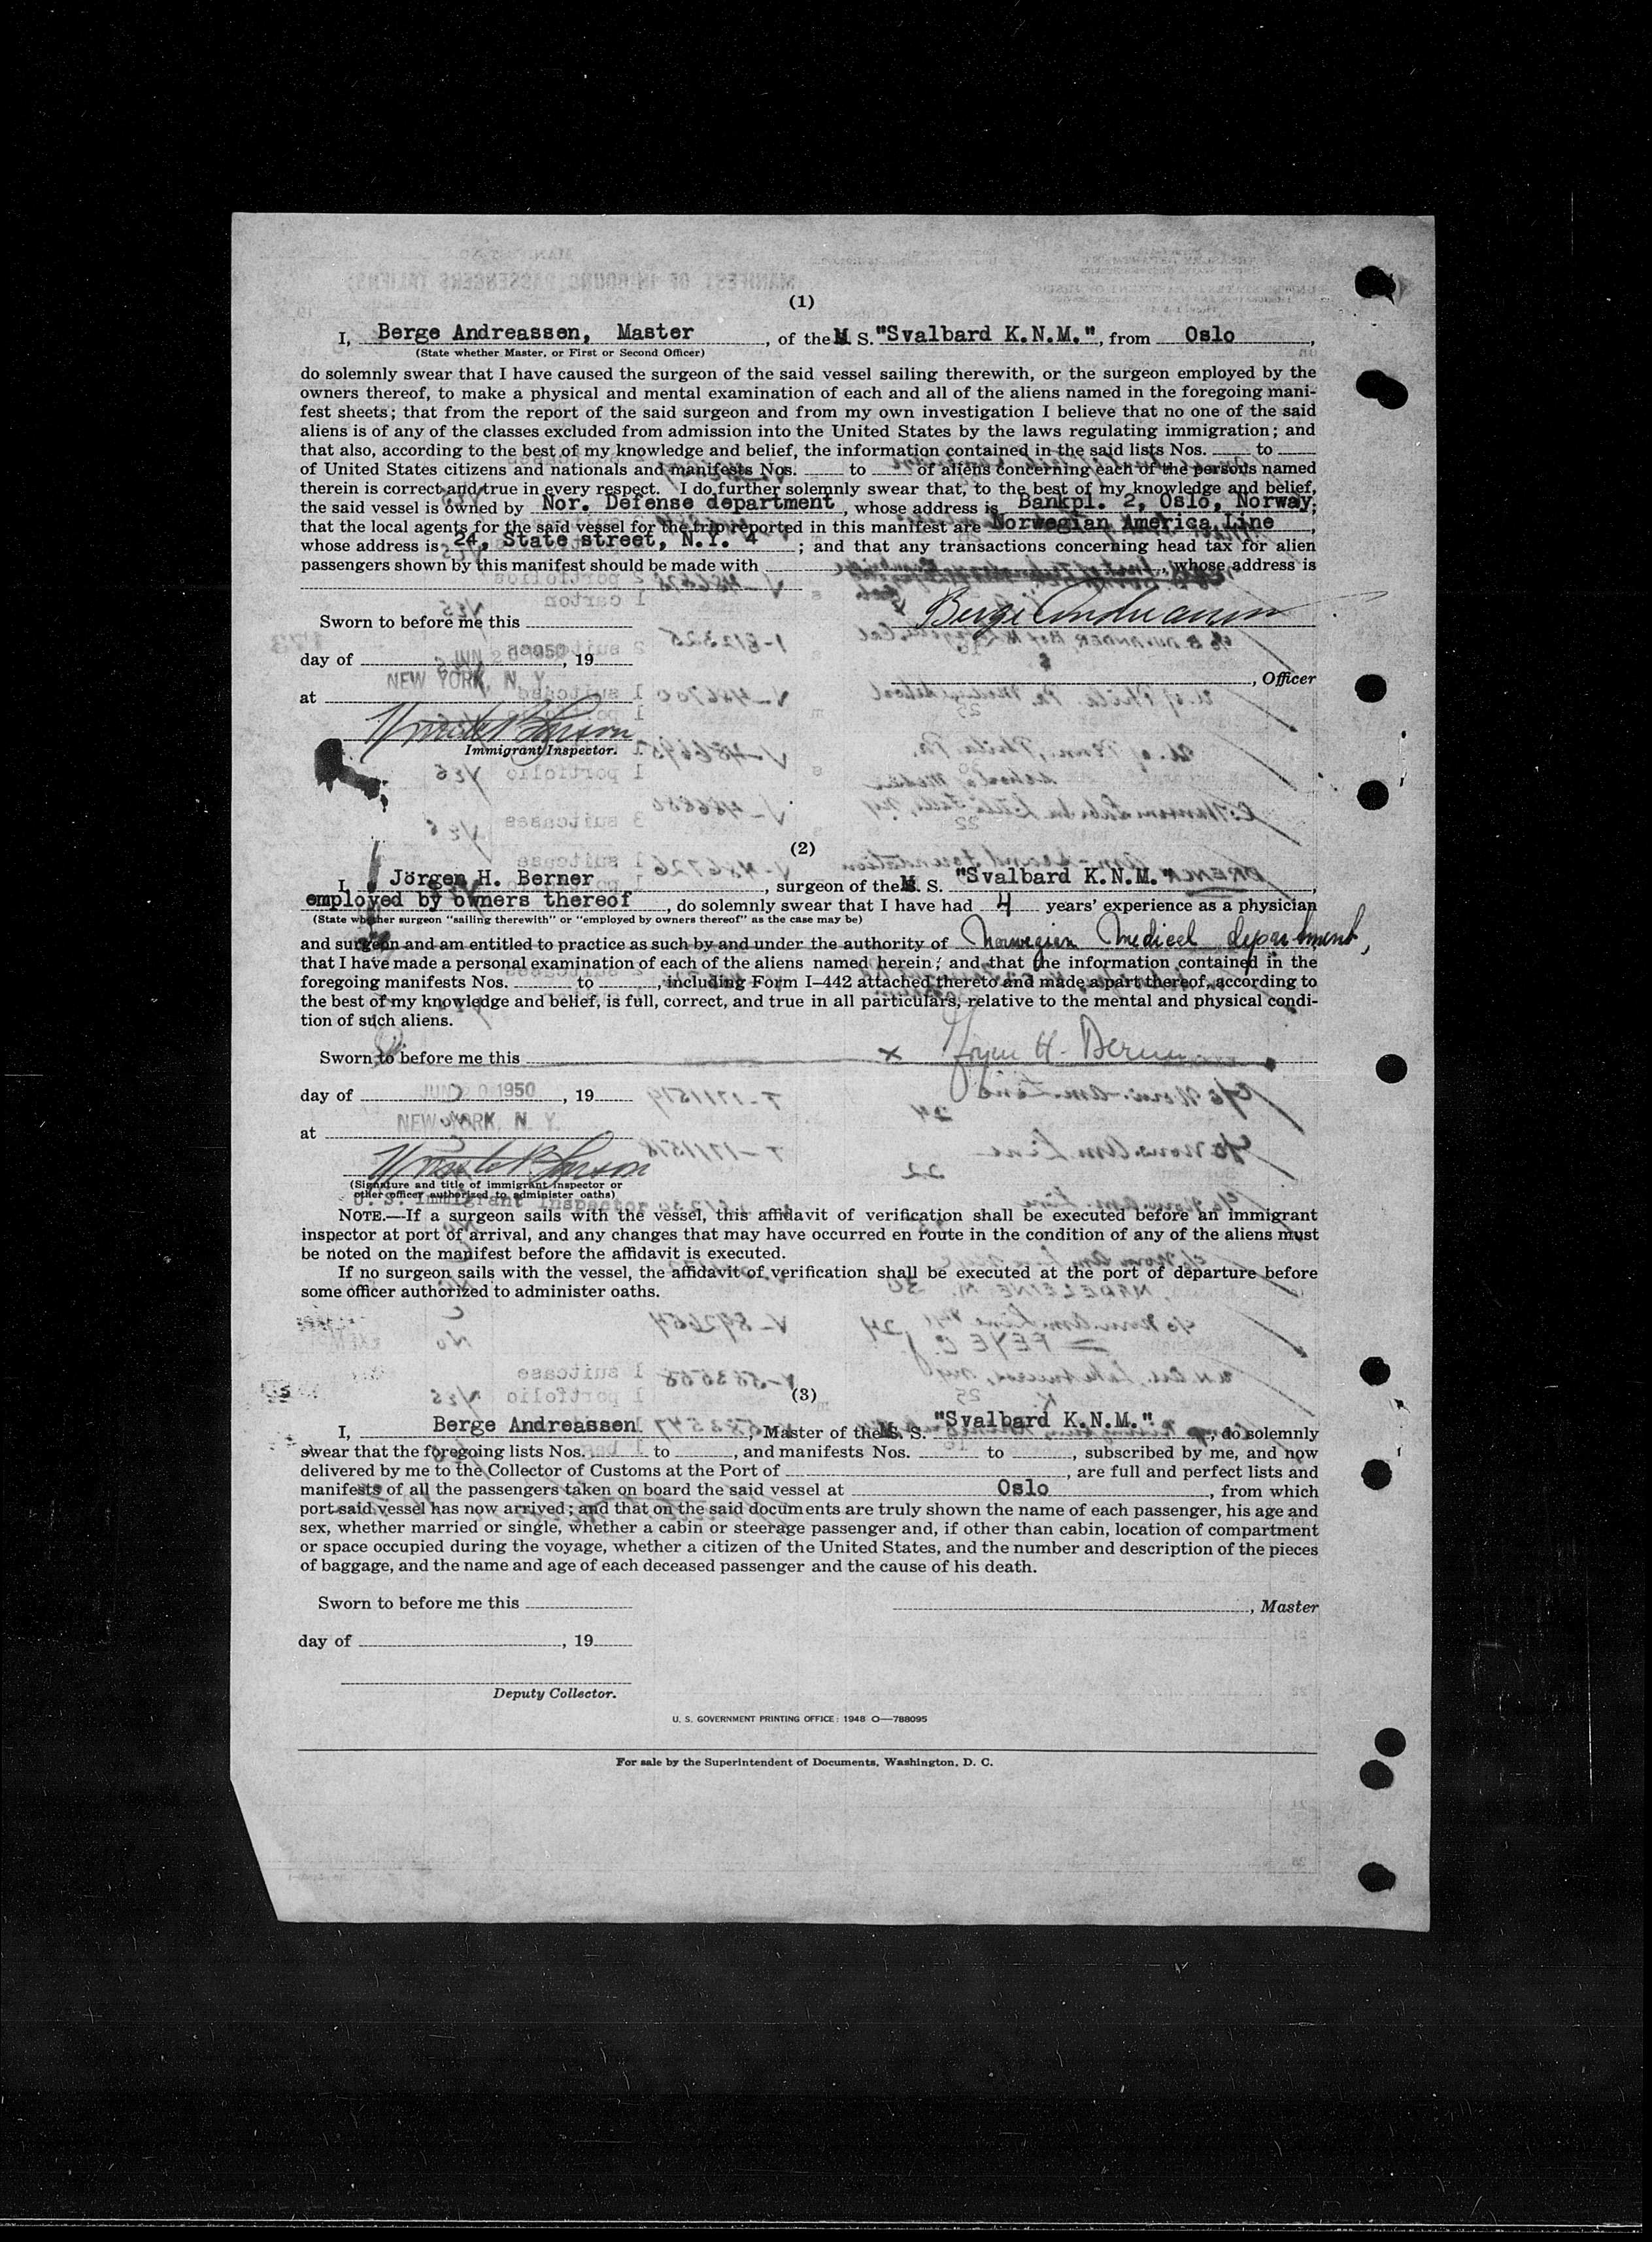 (1)
I, Berge Andreassen, Master, of the M. S. "Svalbard K.N.M.", from Oslo,
(State whether Master, or First or Second Officer)
do solemnly swear that I have caused the surgeon of the said vessel sailing therewith, or the surgeon employed by the
owners thereof, to make a physical and mental examination of each and all of the aliens named in the foregoing mani-
fest sheets; that from the report of the said surgeon and from my own investigation I believe that no one of the said
aliens is of any of the classes excluded from admission into the United States by the laws regulating immigration; and
that also, according to the best of my knowledge and belief, the information contained in the said lists Nos. to
of United States citizens and nationals and manifests Nos. to of aliens concerning each of the persons named
therein is correct and true in every respect. I do further solemnly swear that, to the best of my knowledge and belief,
the said vessel is owned by Nor. Defense department, whose address is Bankpl. 2, Oslo, Norway;
that the local agents for the said vessel for the trip reported in this manifest are Norwegian America Line,
whose address is 24, State street, N.Y. 4; and that any transactions concerning head tax for alien
passengers shown by this manifest should be made with, whose address is
Sworn to before me this Berge Andreassen
day of JUN 1950, 19
NEW YORK, N. Y.
, Officer
at
Immigrant Inspector.
(2)
I, Jörgen H. Berner, surgeon of the M. S. "Svalbard K.N.M.",
employed by owners thereof, do solemnly swear that I have had 4 years' experience as a physician
(State whether surgeon "sailing therewith" or "employed by owners thereof" as the case may be)
and surgeon and am entitled to practice as such by and under the authority of Norwegian Medical department,
that I have made a personal examination of each of the aliens named herein; and that the information contained in the
foregoing manifests Nos. to, including Form I–442 attached thereto and made a part thereof, according to
the best of my knowledge and belief, is full, correct, and true in all particulars, relative to the mental and physical condi-
tion of such aliens.
Sworn to before me this x Jörgen H. Berner
day of JUN 20 1950, 19
NEW YORK, N. Y.
at
(Signature and title of immigrant inspector or
other officer authorized to administer oaths)
U. S. Immigrant Inspector
NOTE.—If a surgeon sails with the vessel, this affidavit of verification shall be executed before an immigrant
inspector at port of arrival, and any changes that may have occurred en route in the condition of any of the aliens must
be noted on the manifest before the affidavit is executed.
If no surgeon sails with the vessel, the affidavit of verification shall be executed at the port of departure before
some officer authorized to administer oaths.
(3)
I, Berge Andreassen, Master of the M. S. "Svalbard K.N.M.", do solemnly
swear that the foregoing lists Nos. to, and manifests Nos. to, subscribed by me, and now
delivered by me to the Collector of Customs at the Port of, are full and perfect lists and
manifests of all the passengers taken on board the said vessel at Oslo, from which
port said vessel has now arrived; and that on the said documents are truly shown the name of each passenger, his age and
sex, whether married or single, whether a cabin or steerage passenger and, if other than cabin, location of compartment
or space occupied during the voyage, whether a citizen of the United States, and the number and description of the pieces
of baggage, and the name and age of each deceased passenger and the cause of his death.
Sworn to before me this
, Master
day of, 19
Deputy Collector.
U. S. GOVERNMENT PRINTING OFFICE: 1948 O—788095
For sale by the Superintendent of Documents, Washington, D. C.